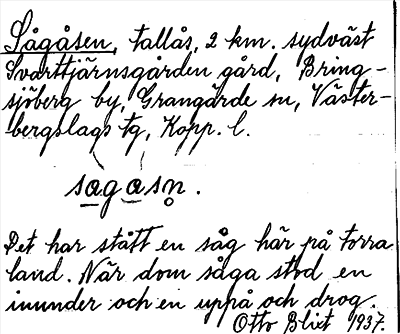 Sågåsen, tallås, 2 km. sydväst
Svarttjärnsgården gård, Bring-
sjöberg by, Grangärde sn, Väster-
bergslags tg, Kopp. l.
sagasn.
Det har stått en såg här på torra
land. När dom såga stod en
inunder och en uppå och drog.
Otto Blixt 1937.